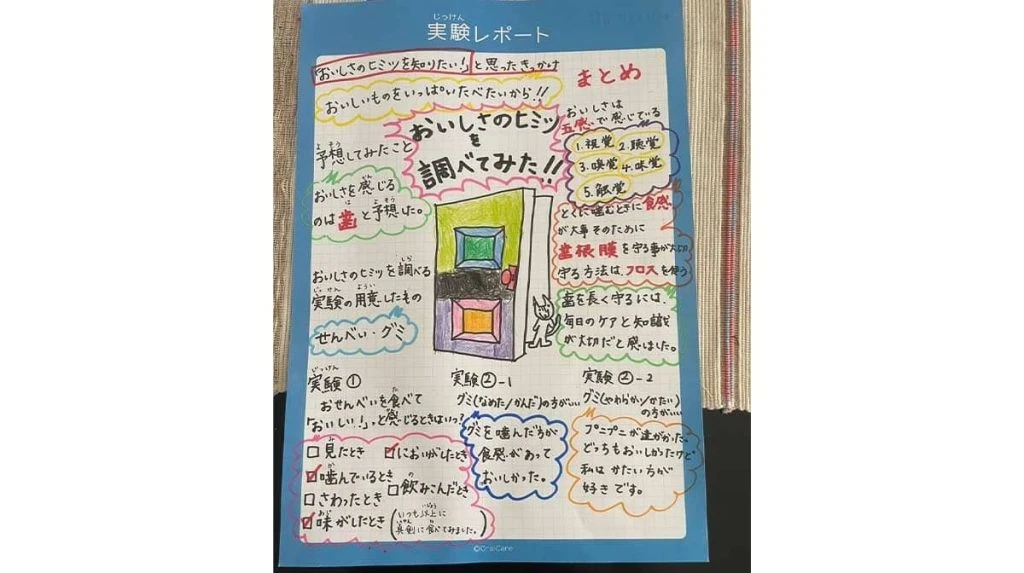 じっけん
実験レポート
「おいしさのヒミツを知りたい!」と思ったきっかけ
おいしいものをいっぱいたべたいから!!
おいしさのヒミツ
を
調べてみた!!
よそう
予想してみたこと
おいしさを感じる
のは歯と予想した。
おいしさのヒミツを調べる
実験の用意したもの
せんべい・グミ
じっけん
実験①
おせんべいを食べて
「おいしい!」と感じるときはいつ?
□見たとき
☑においがしたとき
☑噛んでいるとき
□飲みこんだとき
□さわったとき
☑味がしたとき
(いつも以上に
真剣に食べてみました。)
実験②-1
グミ(なめた/かんだ)の方がいい
グミを噛んだ方が
食感があって
おいしかった。
実験②-2
グミ(やわらかい/かたい)
の方がいい
プニプニが違がかった
どっちもおいしかったけど
私はかたい方が
好きです。
まとめ
おいしさは
五感で感じている
1.視覚 2.聴覚
3.嗅覚 4.味覚
5.触覚
とくに噛むときに食感
が大事そのために
歯根膜を守る事が大切
守る方法はフロスを使う
歯を長く守るには、
毎日のケアと知識
が大切だと感じました。
©OralCare